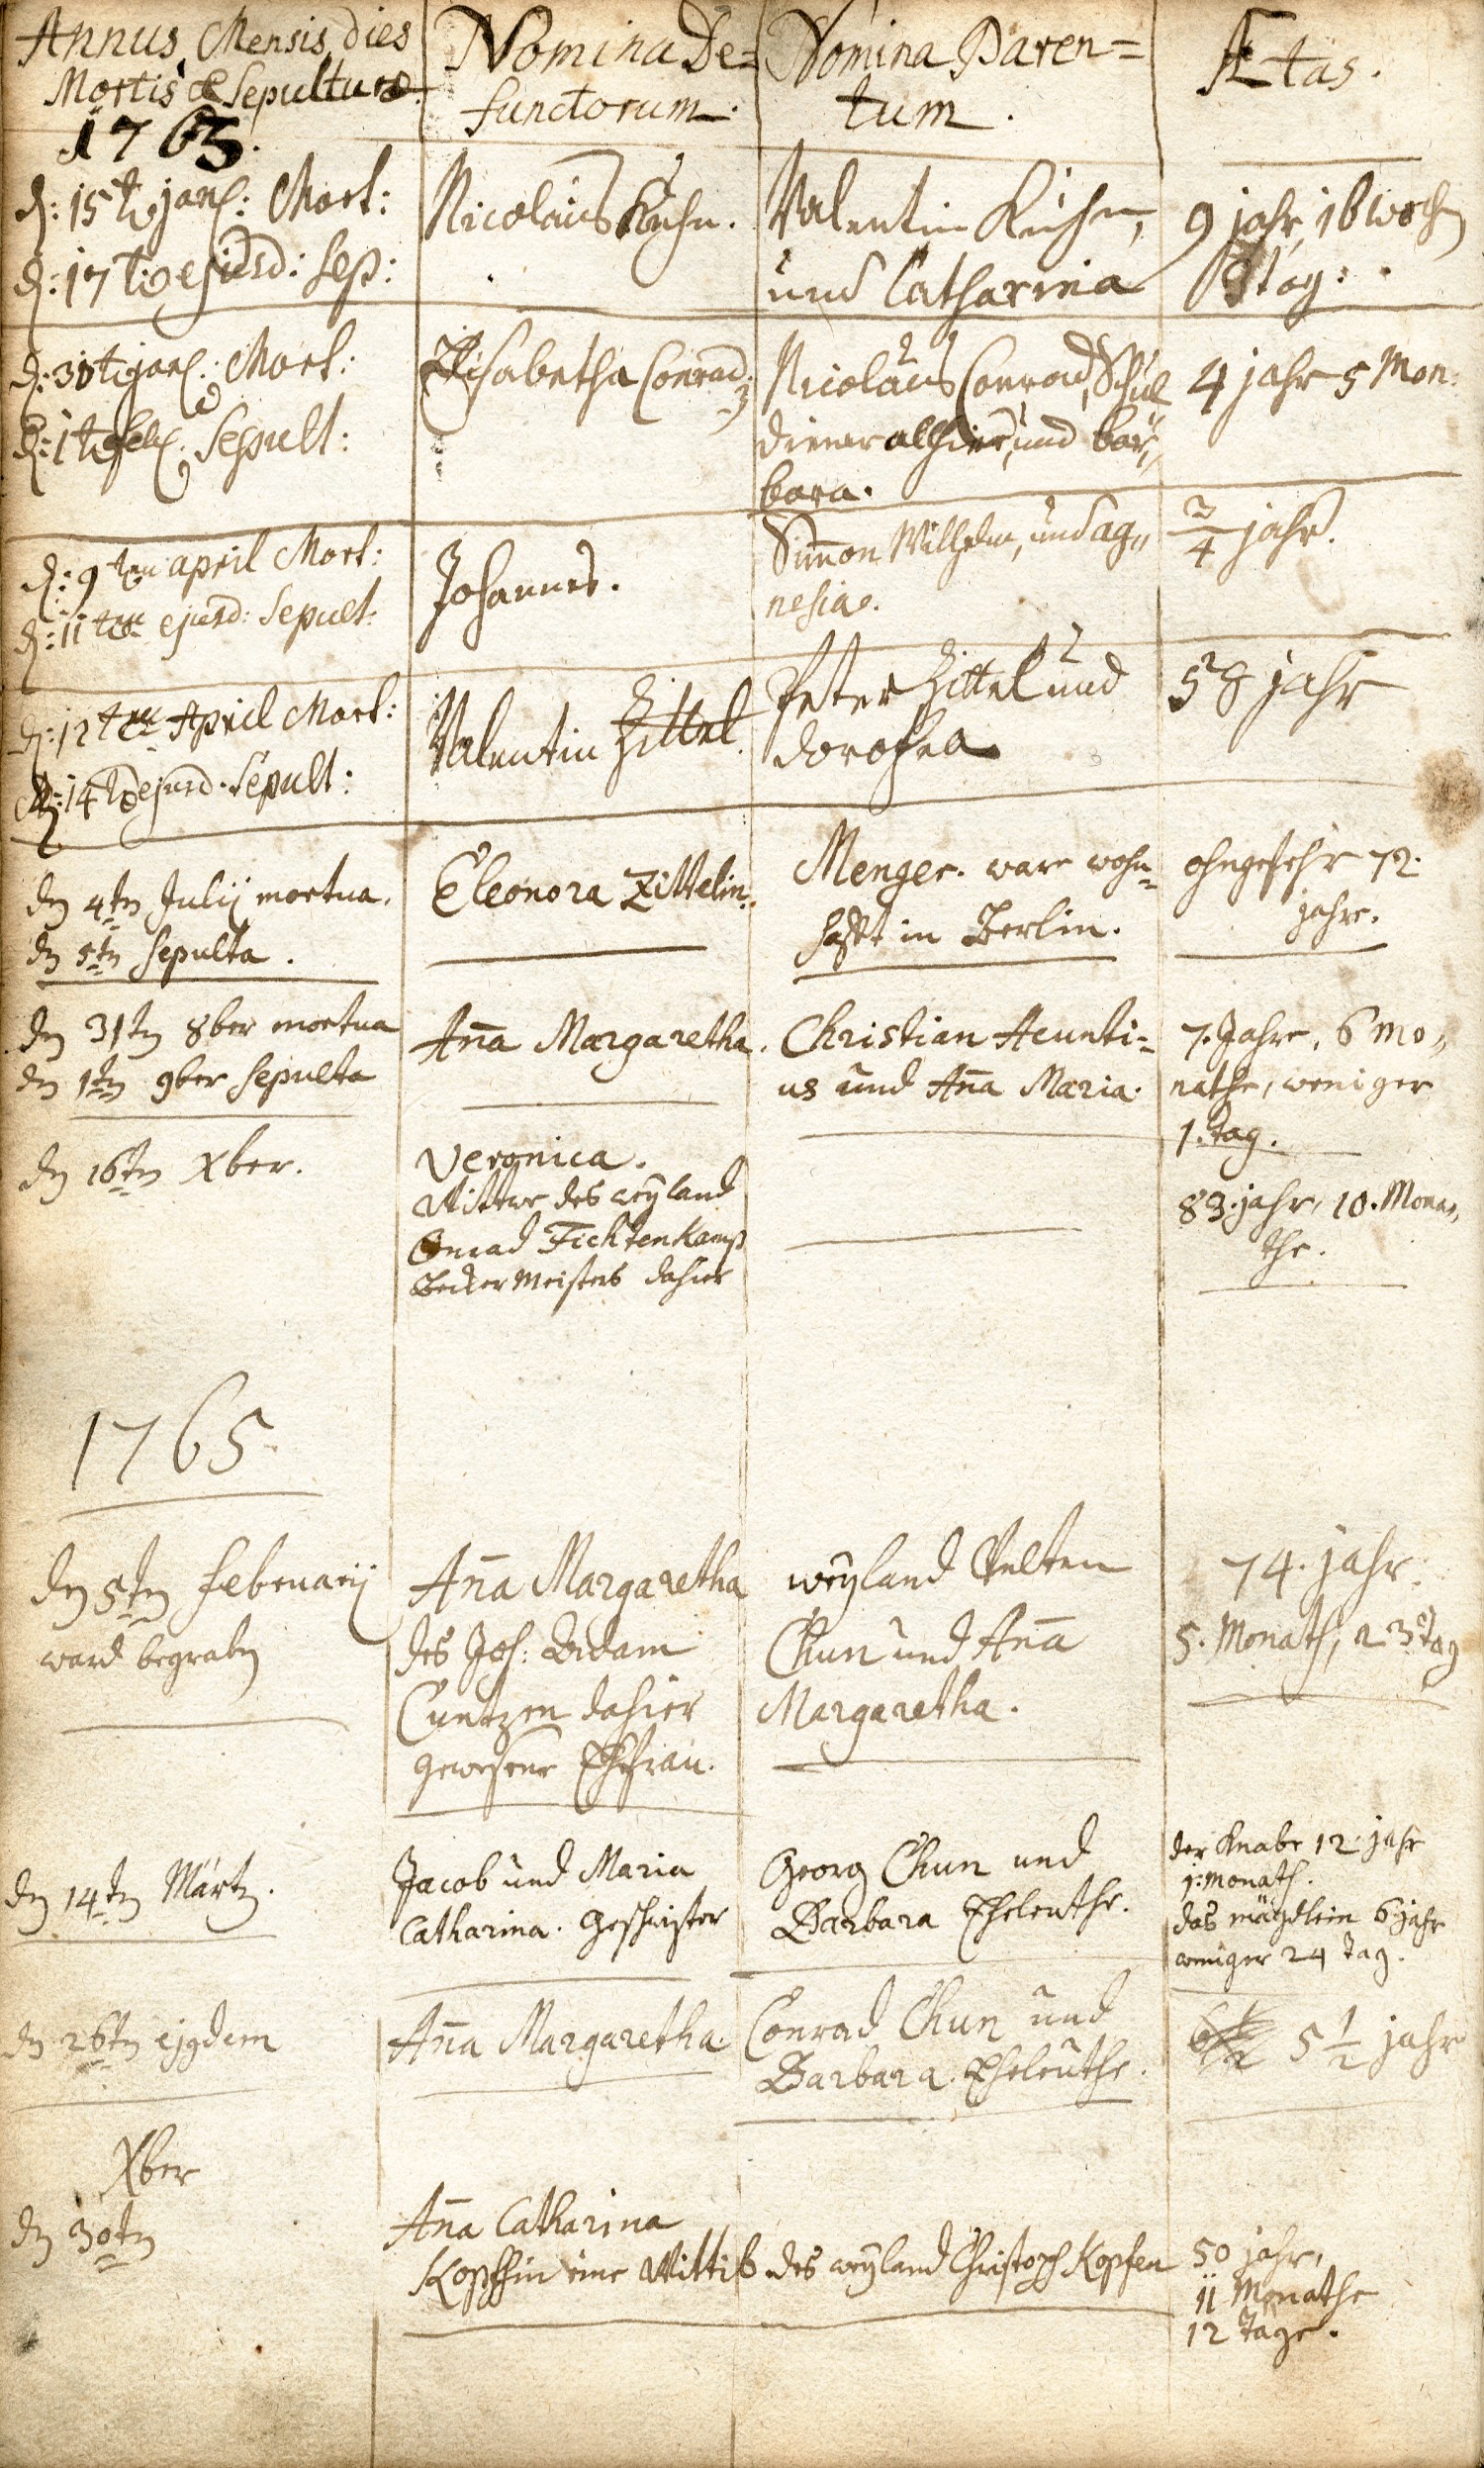 Annus, Mensis, dies
Mortis & Sepulturæ.
1763.
Nomina De=
functorum.
Nomina Paren=
tum.
Ætas.
d: 15t jan: Mort:
d: 17t ejusd: sep:
Nicolaus Kuhn.
Valentin Kuhn,
und Catharina
9 jahr, 16 woch
tag:
d: 30t jan: Mort:
d: 1t feb: Sepult:
Elisabetha Conrad
Nicolaus Conrad, Schul
diener alhier, und bar„
bara.
4 jahr 5 Mon:
d: 9ten april Mort:
d: 11ten ejusd: Sepult:
Johannes.
Simon Wilhelm, und ag„
nesia.
3/4 jahr.
d: 12ten April Mort:
d: 14t ejusd. Sepult:
Valentin Zittel.
Peter Zittel und
dorothea
58 jahr
dn 4tn Julij mortua.
dn 5tn sepulta.
Eleonora Zittelin.
Menger. ware wohn=
hafft in Berlin.
ohngefehr 72.
jahre.
dn 31tn 8ber mortua
dn 1tn 9ber sepulta
Aña Margaretha.
Christian Acunti=
us und Aña Maria.
7. Jahre, 6 mo„
nathe, weniger
1. tag.
dn 16tn Xber.
Veronica.
Wittwe des weyland
Conrad Fichtenkamp
Becker Meisters dahier
83. jahr, 10. Mona„
the.
1765.
den 5tn februarij
ward begraben
Aña Margaretha
des Joh: Adam
Cuntzen dahier
gewesene Ehefrau.
weyland Velten
Chun und Aña
Margaretha.
74. jahr.
5. Monath, 23 tag
dn 14tn Märtz.
Jacob und Maria
Catharina. Geschwister
Georg Chun und
Barbara Eheleuthe.
der Knabe 12 jahr
1. monath.
das mägdlein 6 jahr
weniger 24 tag.
dn 26tn ejusdem
Aña Margaretha.
Conrad Chun und
Barbara Eheleuthe.
5 1/2 jahr
Xber
dn 30tn
Aña Catharina
Kopfin eine Wittib des weyland Christoph Kopfen
50 jahr,
11 Monathe
12 Tage.